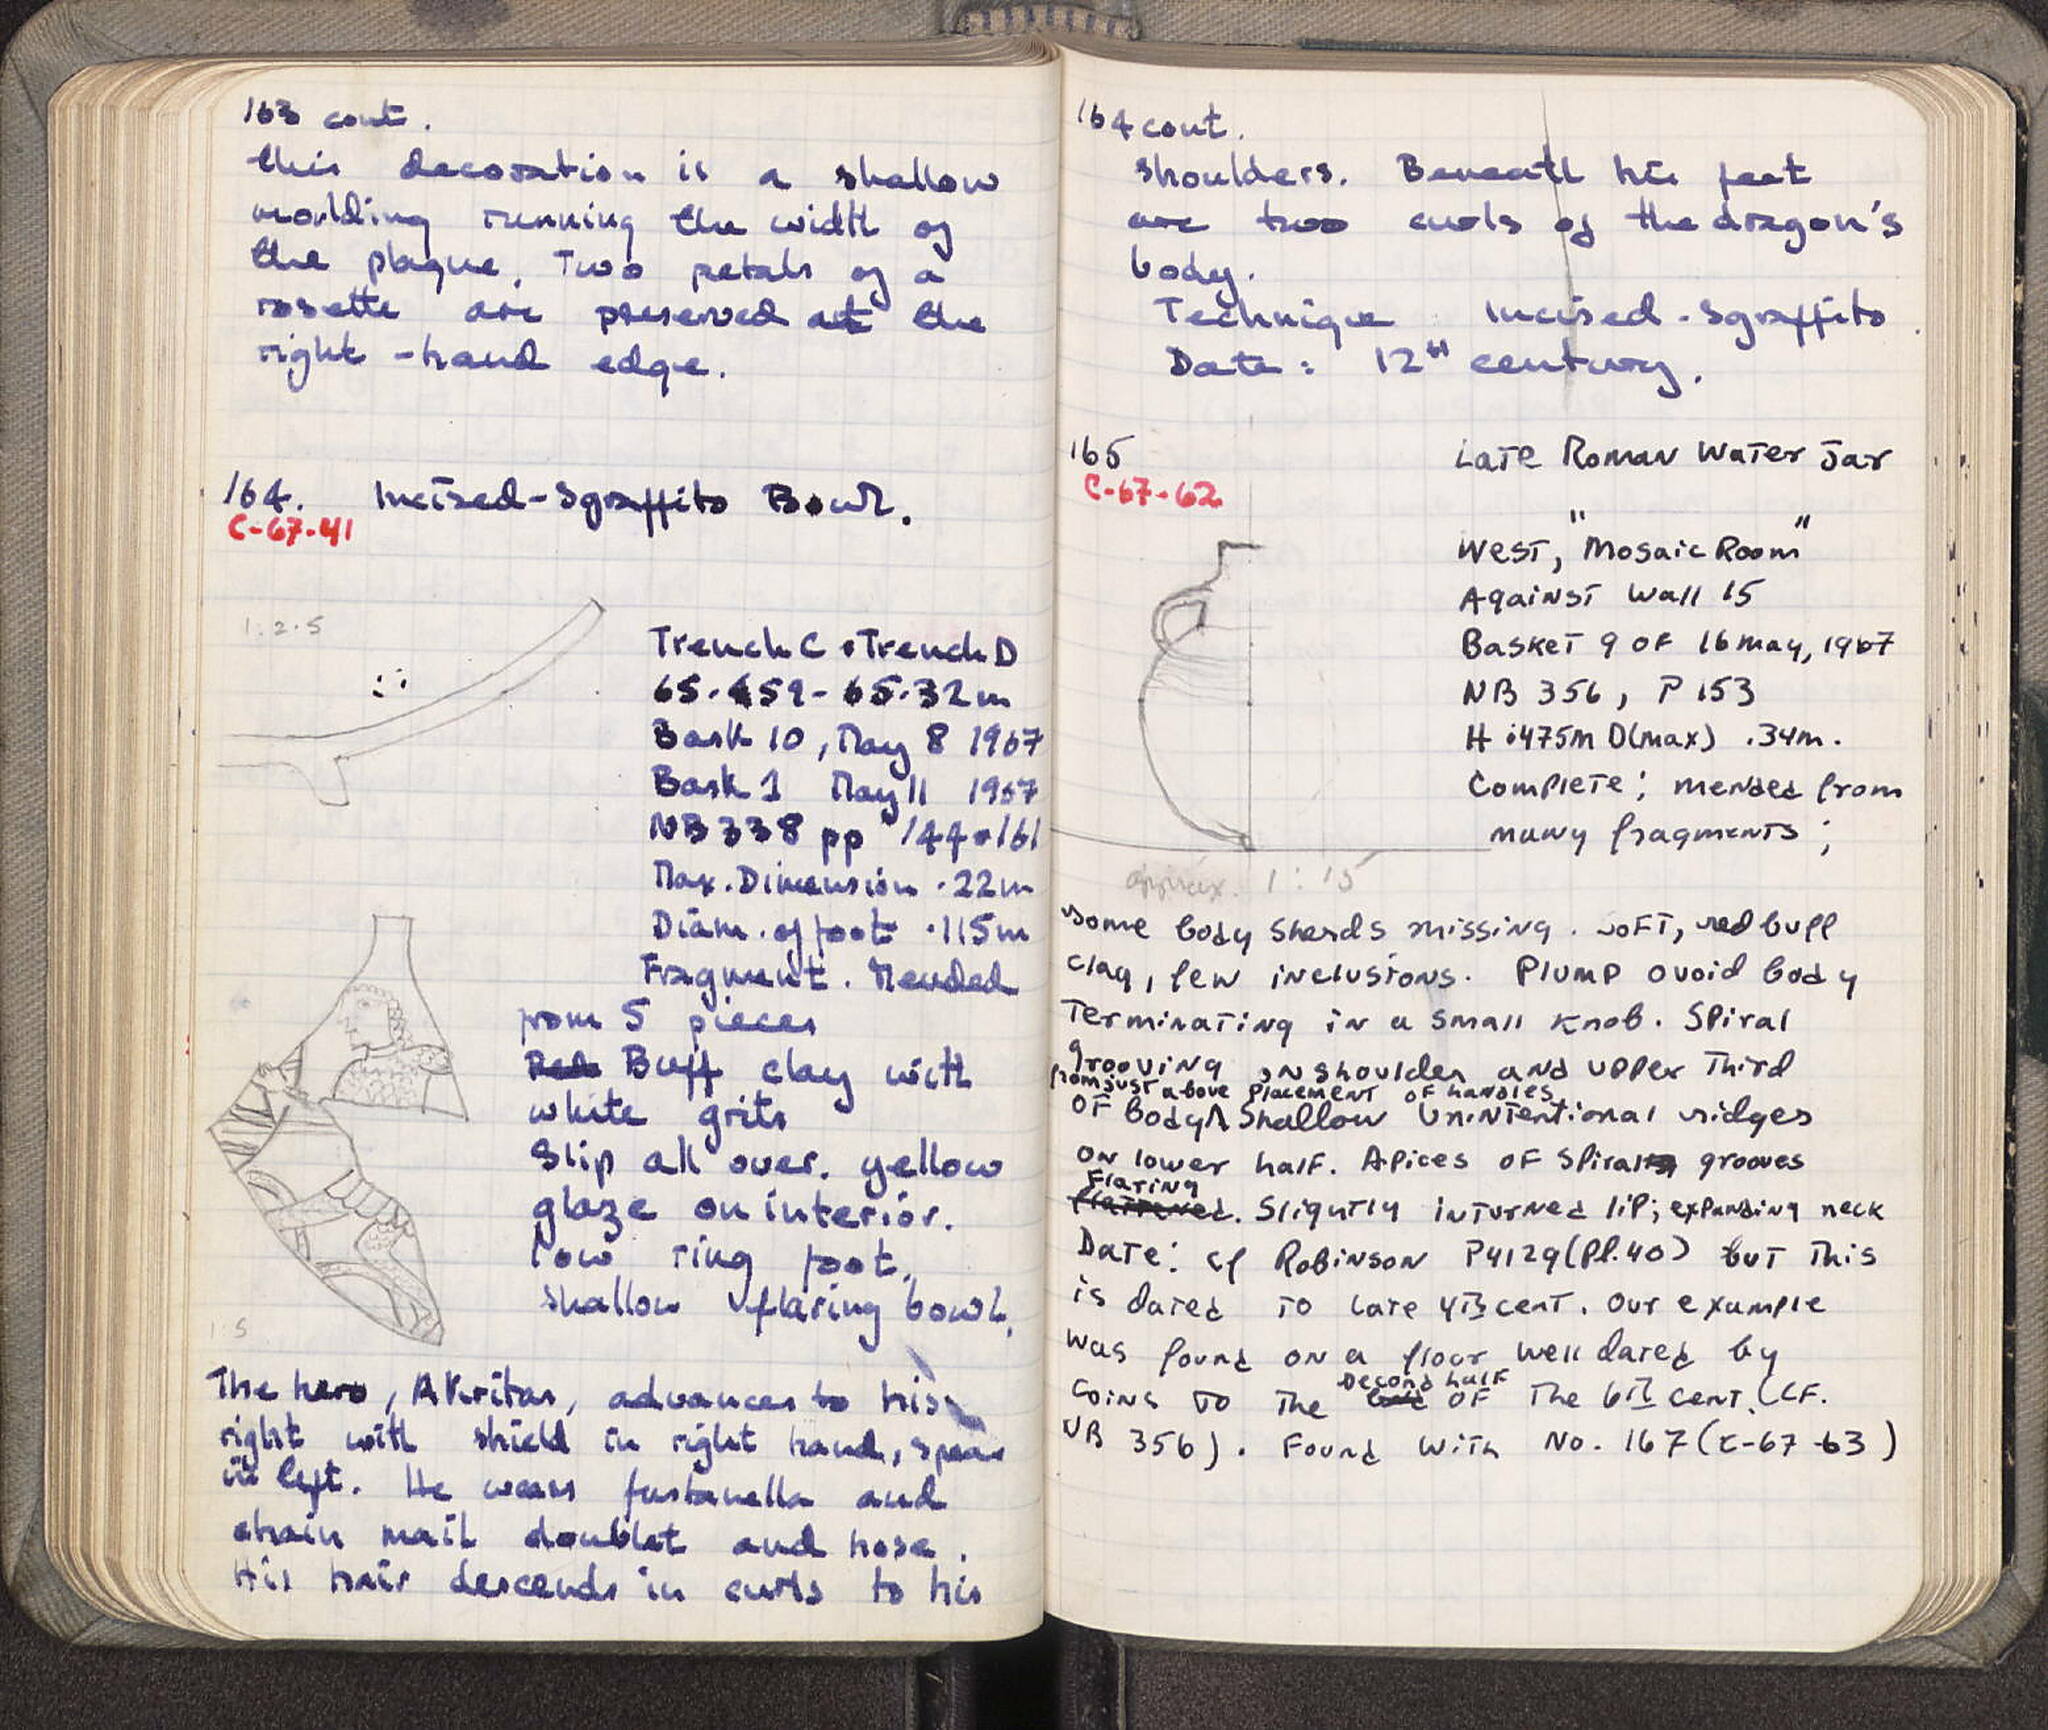 163 cont.
this decoration is a shallow
moulding running the width of
the plaque. Two petals of a
rosette are preserved at the
right-hand edge.
164. Incised-Sgraffito Bowl.
C-67-41
1:2.5
Trench C + Trench D
65.459 - 65.32m
Bask 10, May 8 1967
Bask 1 May 11 1967
NB 338 pp 144+161
Max. Dimension .22m
Diam. of foot .115m
Fragment. Mended
from 5 pieces
Red Buff clay with
white grits
Slip all over. yellow
glaze on interior.
low ring foot.
shallow flaring bowl.
1:5
The hero, Akritas, advances to his
right with shield in right hand, spear
in left. He wears fustanella and
chain mail doublet and hose.
His hair descends in curls to his
164 cont.
shoulders. Beneath his feet
are two curls of the dragon's
body.
Technique Incised-Sgraffito.
Date: 12th century.
165 Late Roman Water Jar
C-67-62
West, "Mosaic Room"
Against Wall 15
Basket 9 of 16 May, 1967
NB 356, P 153
H .475m D(max) .34m.
Complete; mended from
many fragments;
approx. 1:15
some body sherds missing. Soft, red buff
clay, few inclusions. Plump ovoid body
Terminating in a small knob. Spiral
grooving on shoulder and upper Third
from just above placement of handles
of body ∧ Shallow Unintentional ridges
on lower half. Apices of Spiral grooves
Flaring
flattened. Slightly inturned lip; expanding neck
Date: cf Robinson P4129 (Pl.40) but This
is dated to late 4th cent. Our example
was found on a floor well dated by
Second half
coins to the of the 6th cent. (CF.
NB 356). Found with No. 167 (C-67-63)